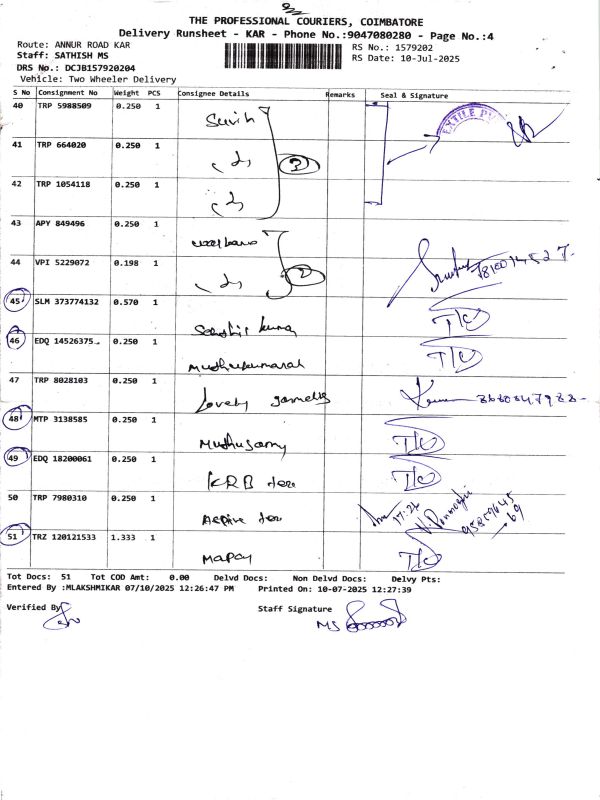 THE PROFESSIONAL COURIERS, COIMBATORE
Delivery Runsheet - KAR - Phone No.:9047080280 - Page No.:4
Route: ANNUR ROAD KAR RS No.: 1579202
Staff: SATHISH MS RS Date: 10-Jul-2025
DRS No.: DCJB157920204
Vehicle: Two Wheeler Delivery
S No Consignment No Weight PCS Consignee Details Remarks Seal & Signature
40 TRP 5988509 0.250 1
41 TRP 664020 0.250 1
3
42 TRP 1054118 0.250 1
43 APY 849496 0.250 1
44 VPI 5229072 0.198 1
2
45 SLM 373774132 0.570 1
Sathis kumar T/O
46 EDQ 14526375 0.250 1
Muthukumarah T/O
47 TRP 8028103 0.250 1
Lovely
48 MTP 3138585 0.250 1
Muthusamy T/O
49 EDQ 18200061 0.250 1
KRB tex T/O
50 TRP 7980310 0.250 1
tex
51 TRZ 120121533 1.333 1
T/O
Tot Docs: 51 Tot COD Amt: 0.00 Delvd Docs: Non Delvd Docs: Delvy Pts:
Entered By :MLAKSHMIKAR 07/10/2025 12:26:47 PM Printed On: 10-07-2025 12:27:39
Verified By Staff Signature
MS